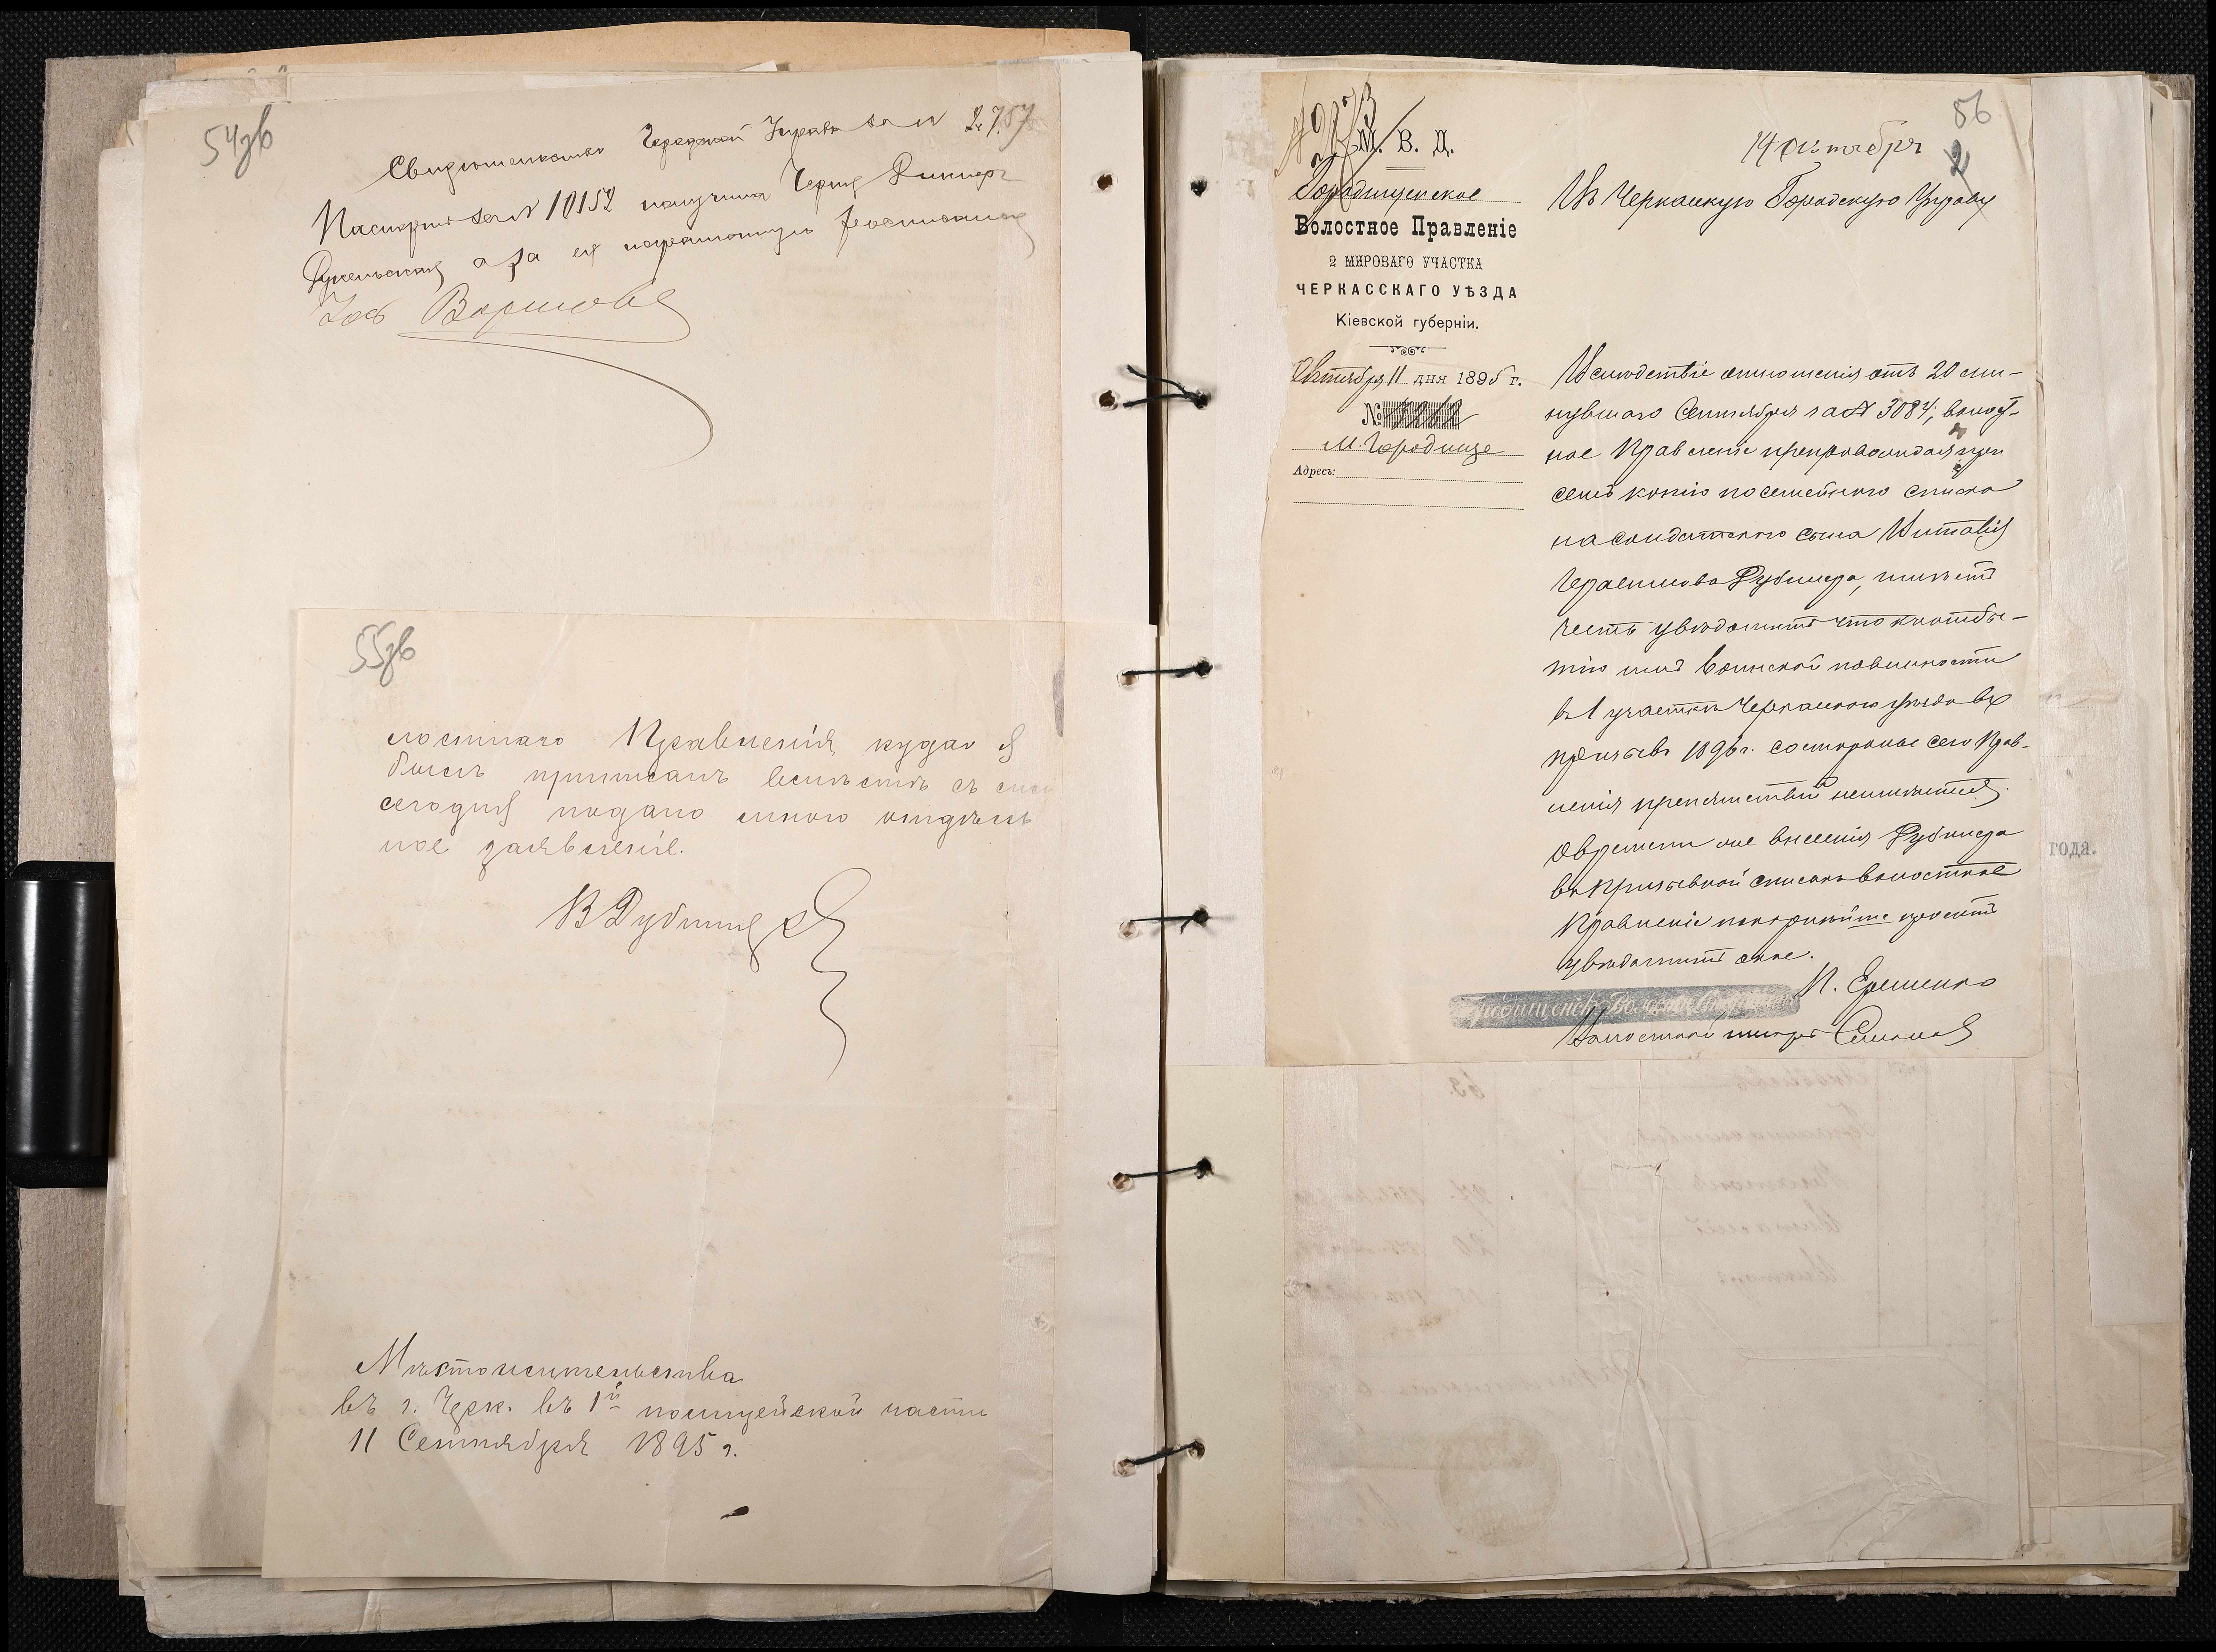 54зв
Свидетельство Городской Управы за N 2757
Паспортъ за N 10152 получила
а за ея неграмотную росписался
55зв
лостнаго Правленія, куда я
былъ приписанъ вмѣстѣ съ симъ
сегодня подано мною отдѣль
ное заявленіе.
В Рубинщ
Мѣстожительства
въ г. Черк. въ 1й полицейской части
11 Сентября 1895 г.
56
14 октября
2
М. В. Д.
Городищенское
Волостное Правленіе
2 МИРОВАГО УЧАСТКА
ЧЕРКАССКАГО УѢЗДА
Кіевской губерніи.
Октября 11 дня 1895 г.
№ 3262
М. Городище
Адресъ:
Въ Черкаскую Городскую Управу
Вслѣдствіе отношенія отъ 20 ми-
нувшаго Сентября за N 3084, волост-
ное Правленіе препровождая при
семъ копію посемейнаго списка
на солдатскаго сына Виталія
Герасимова Рубинера, имѣетъ
честь увѣдомить что къ отбы-
тію имъ воинской повинности
въ 1 участкѣ Черкаскаго уѣзда въ
призывъ 1896 г. со стороны сего Прав-
ленія препятствій неимѣется.
О времени же внесенія Рубинера
въ призывной списокъ волостное
Правленіе покорнѣйше проситъ
увѣдомить оное.
П. Еременко
Волостной писарь
года.